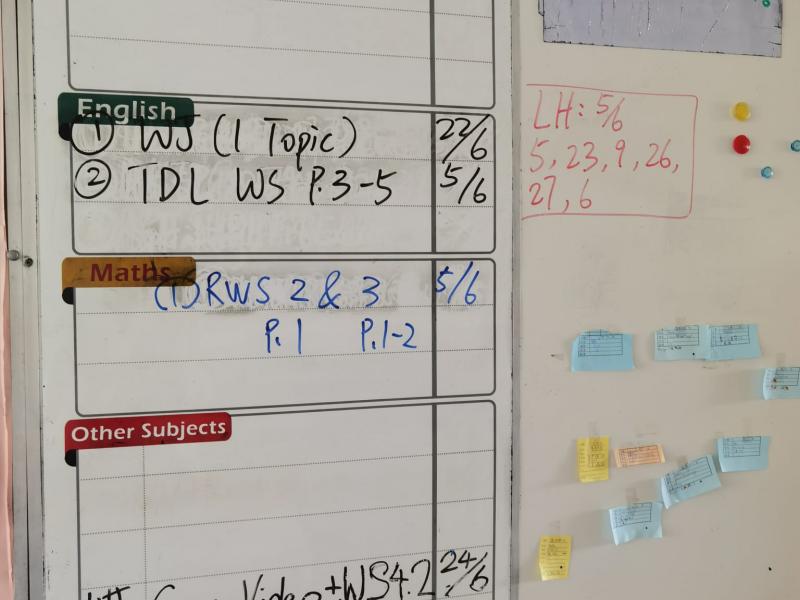 English
① WS (1 Topic) 22/6
② TDL WS P.3-5 5/6
Maths
(1) RWS 2 & 3 5/6
P.1 P.1-2
Other Subjects
Video + WS4.2 24/6
LH: 5/6
5, 23, 9, 26,
27, 6